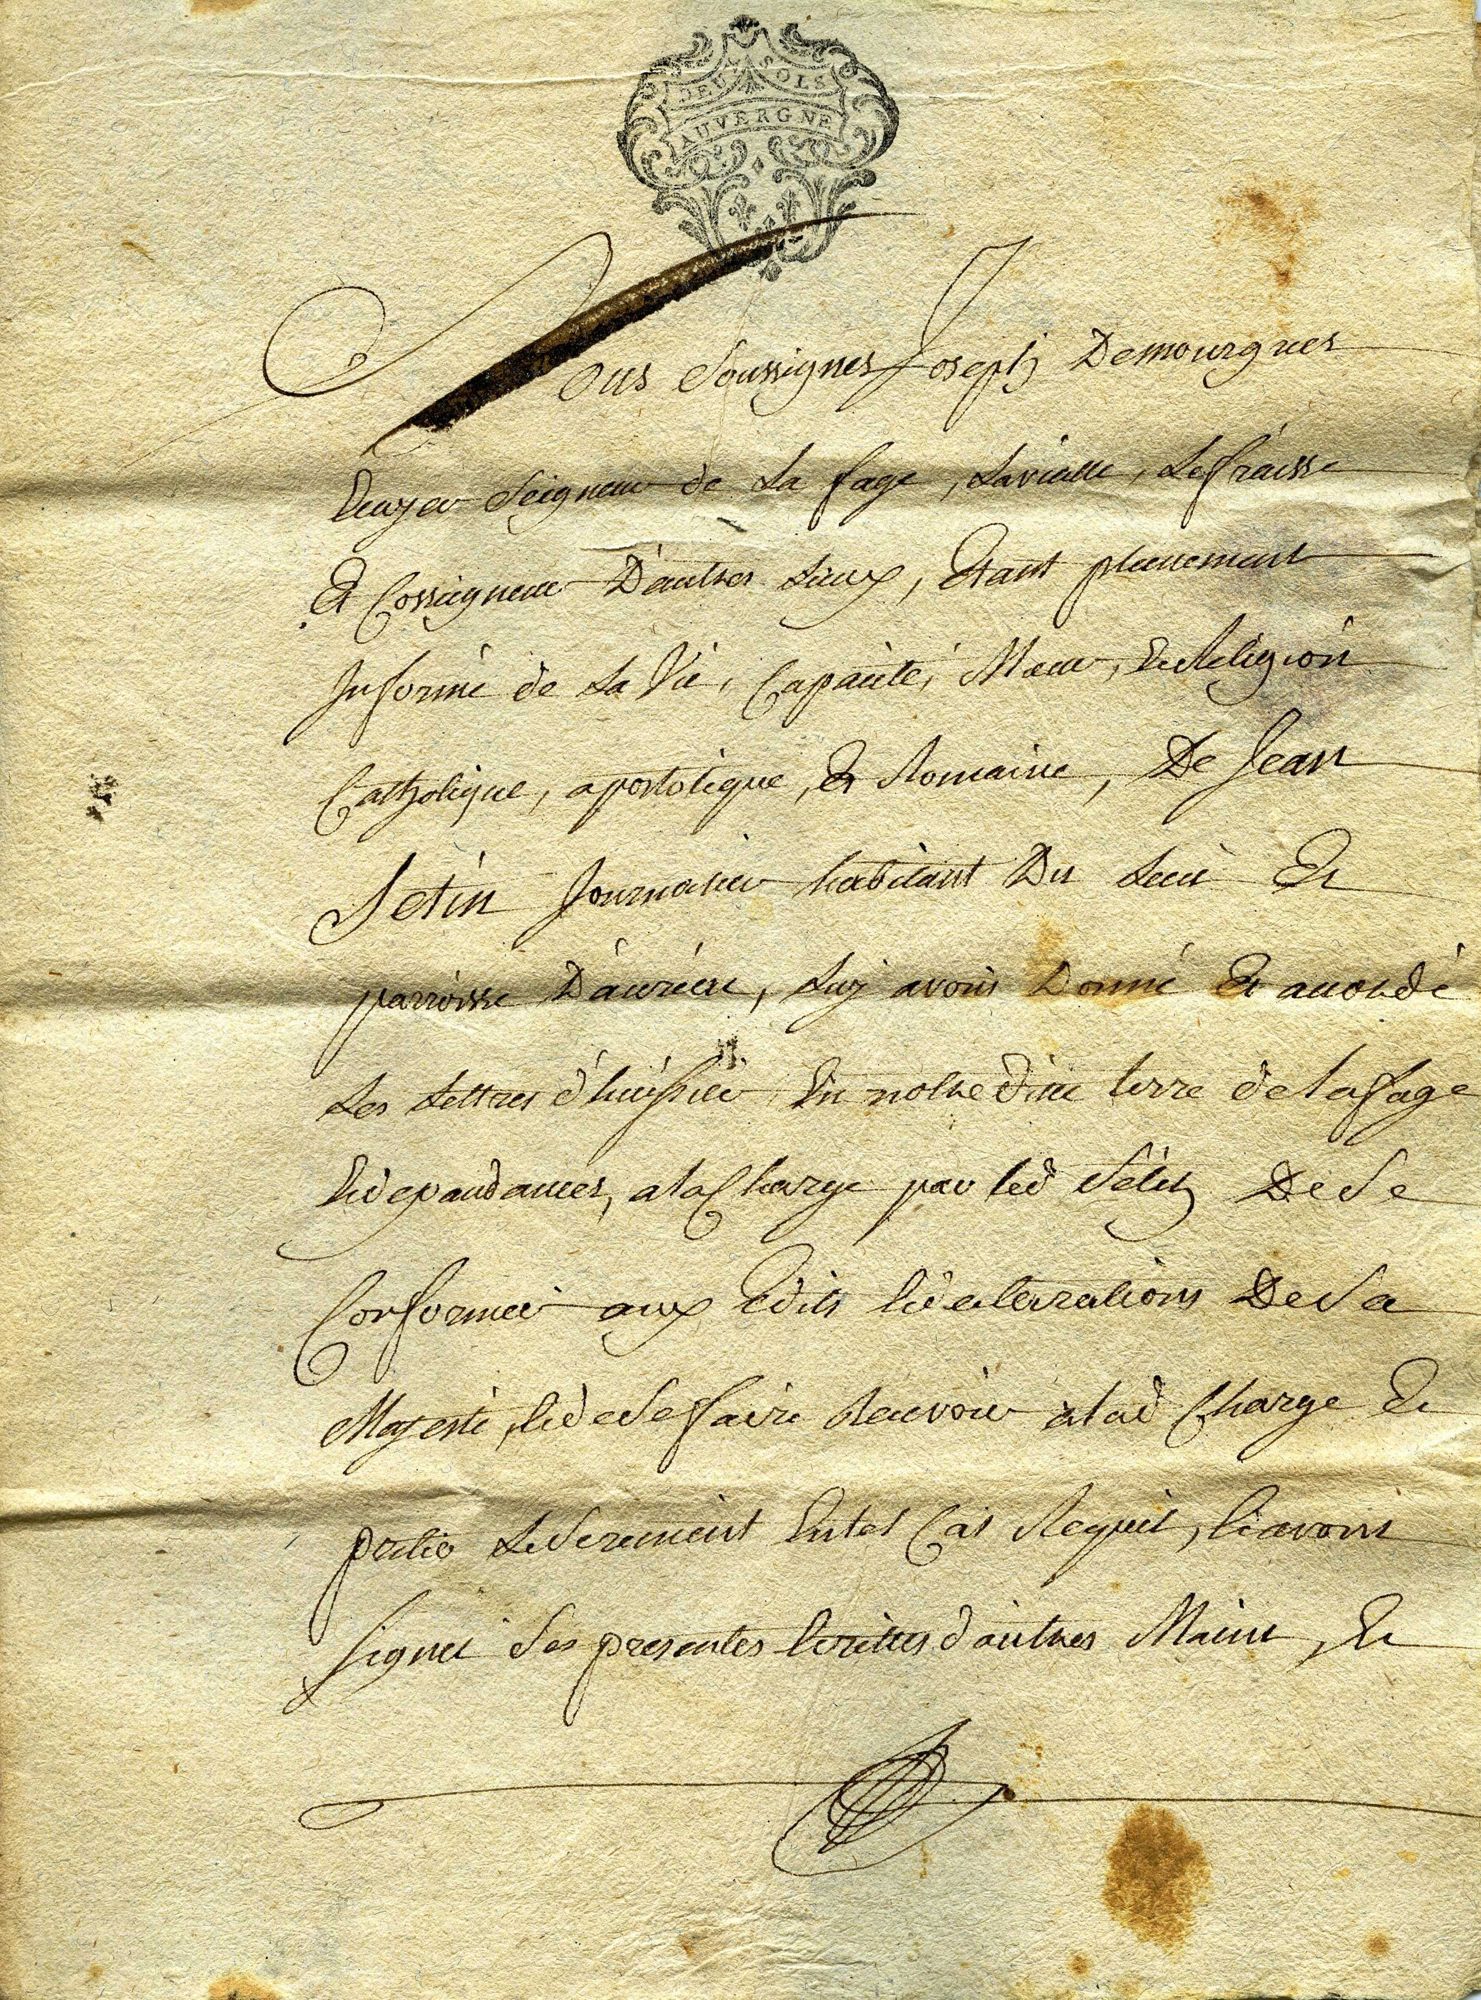 DEUX SOLS
AUVERGNE
Nous Soussignes Joseph Demourgues
Ecuyer Seigneur de La fage, Lavialle, Lefraisse
Et Cosseigneur D'autres Lieux, Etant pleinement
Informé de La Vie, Capacité, Mœur, Et Religion
Catholique, apostolique, Et Romaine, De Jean
Setin Journalier habitant Du Lieu Et
parroisse D'auriere, Luy avons Donné Et accordé
Les Lettres d'huissier En notre dite terre de la fage
Et depandances, a la Charge par led Setin De Se
Conformer aux Edits Et declarations De Sa
Majesté, Et de Se faire Recevoir a lad Charge Et
preter Le Serement En tel Cas Requis, Et avons
signé Ses presentes Ecrittes d'autres Mains, Et